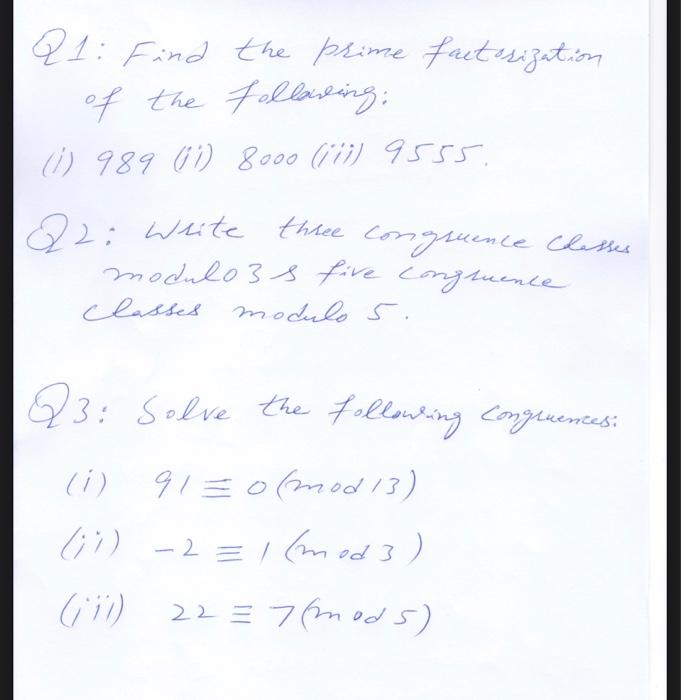 Q1: Find the prime factorization
of the following:
(i) 989 (ii) 8000 (iii) 9555.
Q2: Write three congruence classes
modulo 3 & five congruence
classes modulo 5.
Q3: Solve the following congruences:
(i) 91 ≡ 0 (mod 13)
(ii) -2 ≡ 1 (mod 3)
(iii) 22 ≡ 7 (mod 5)